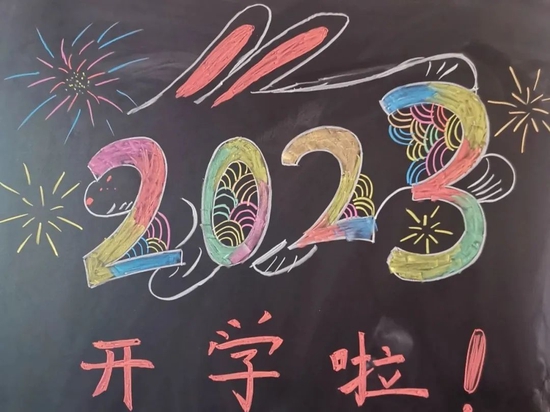 2023
开学啦!